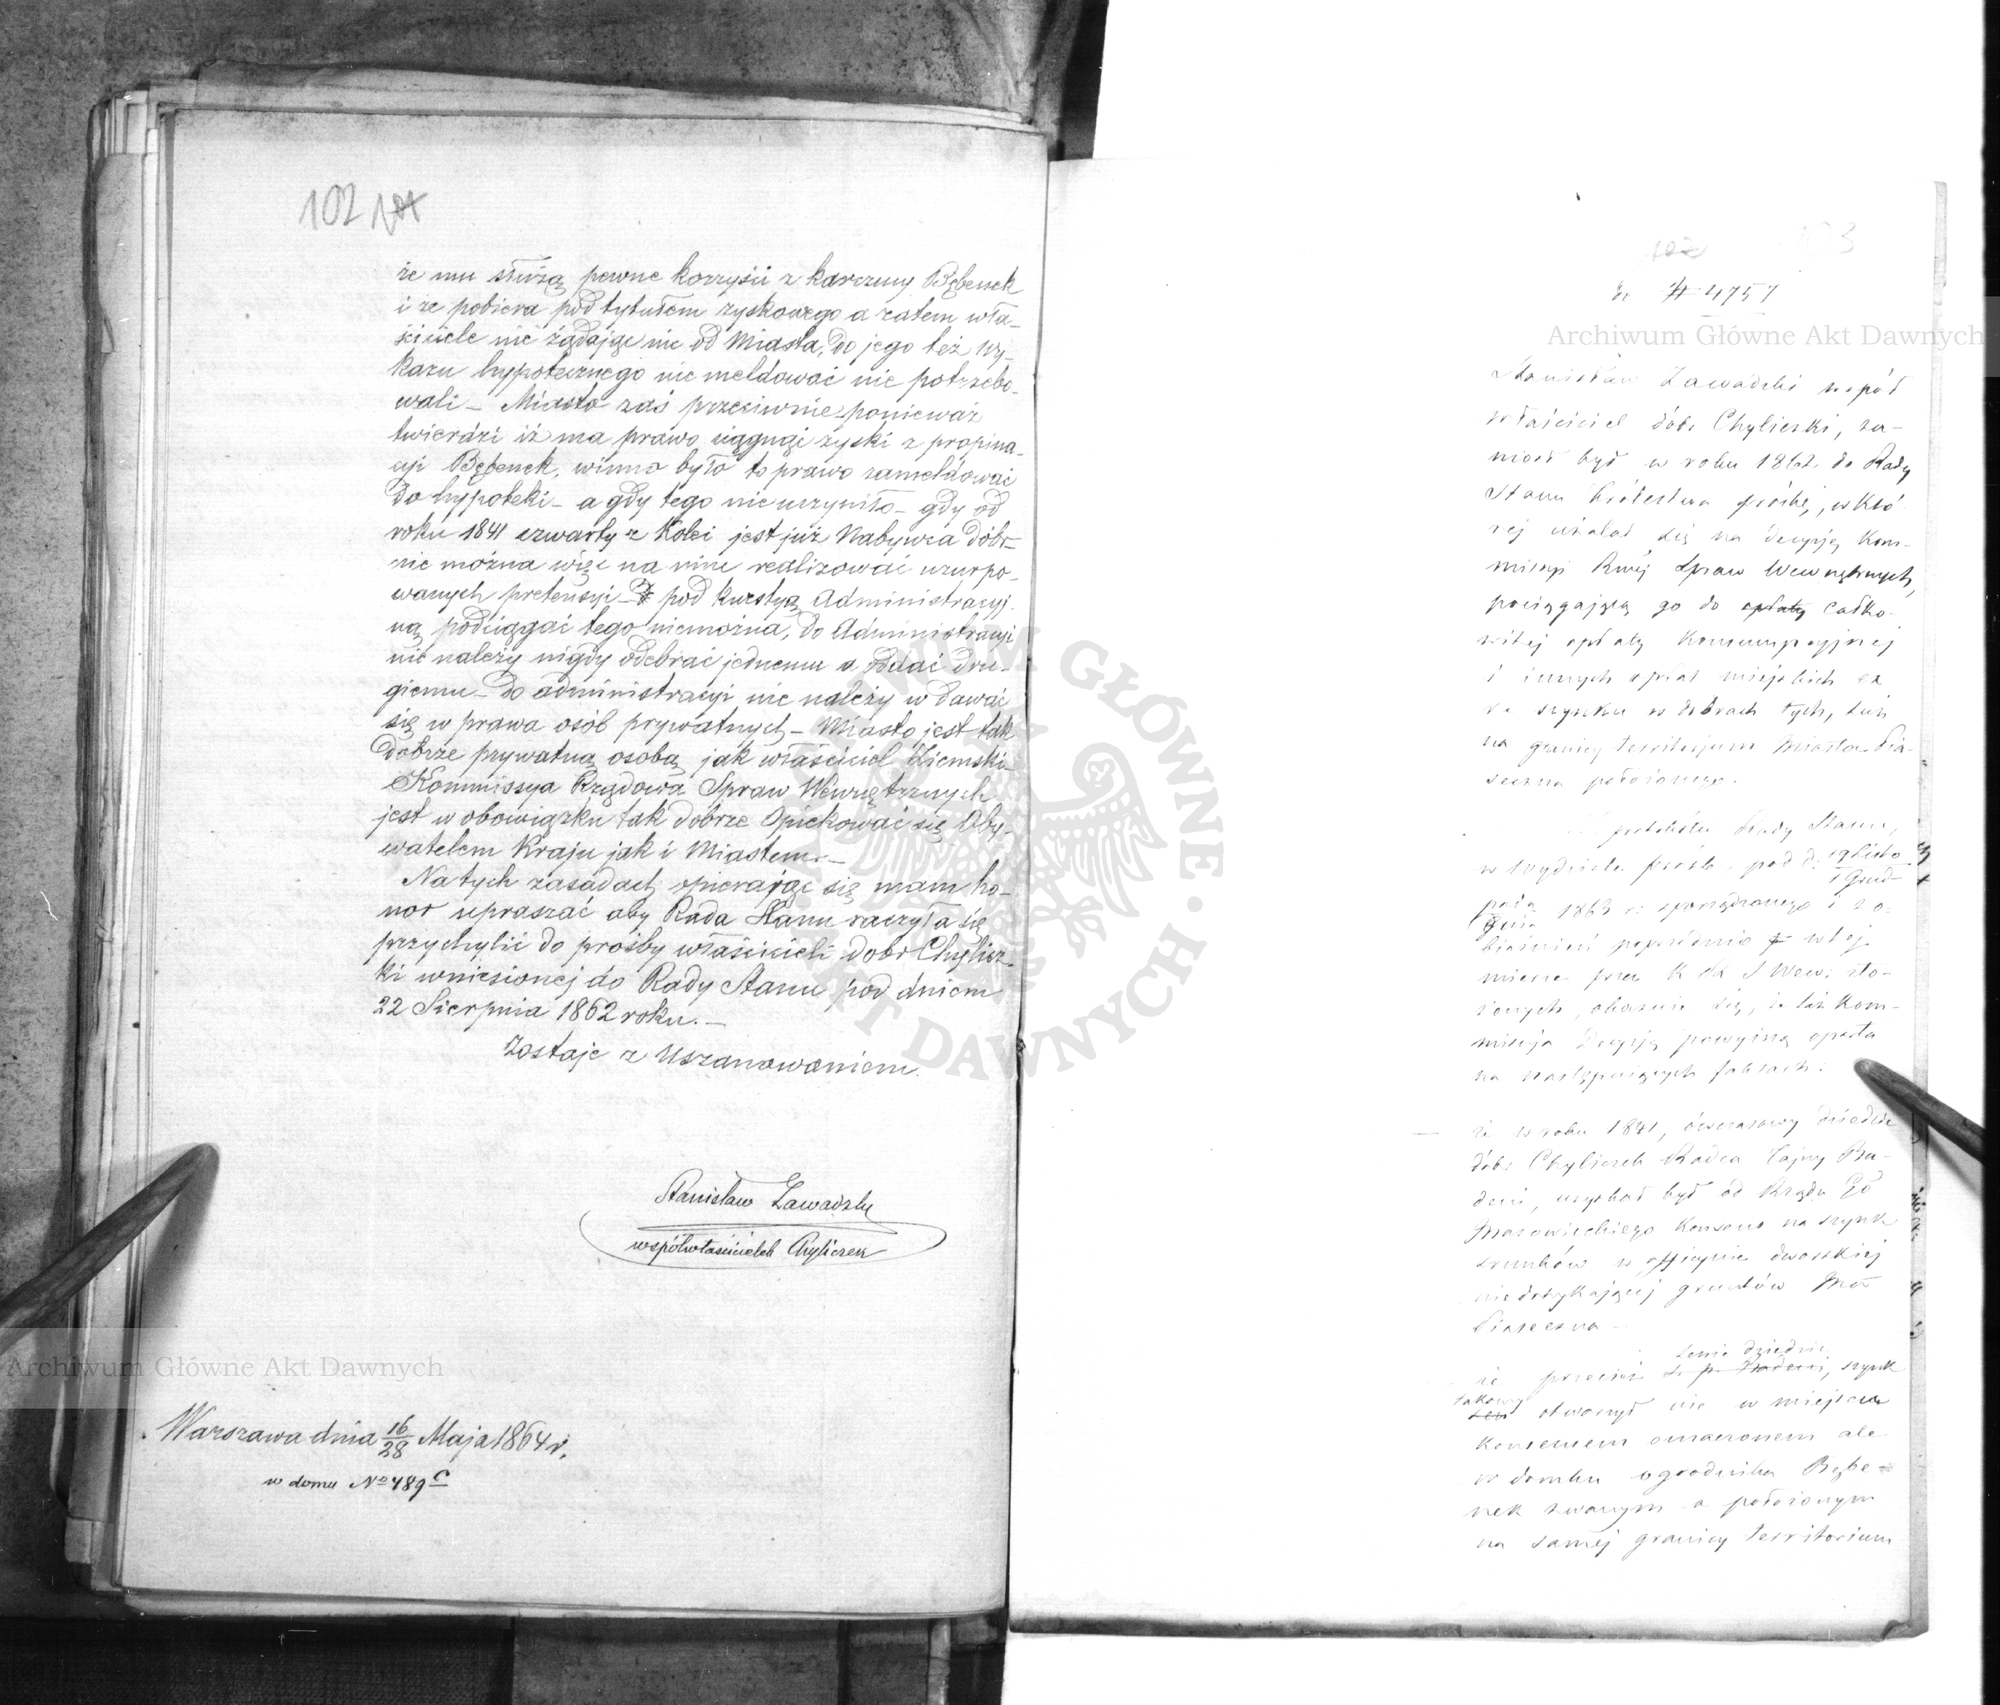 102
że mu służą pewne korzyści z karczmy Bębenek
i że pobiera pod tytułem zyskowego a zatem wła-
ściciele nie żądając nic od Miasta, do jego też wy-
kazu hypotecznego nic meldować nie potrzebo-
wali – Miasto zaś przeciwnie ponieważ
twierdzi iż ma prawo ciągnąć zyski z propina-
cji Bębenek, winno było to prawo zameldować
do hypoteki – a gdy tego nie uczyniło – gdy od
roku 1841 czwarty z kolei jest już Nabywca dóbr –
nie można więc na nim realizować uzurpo-
wanych pretensyi – pod kwestyą Administracyj-
ną podciągać tego niemożna, do Administracyi
nie należy nigdy odebrać jednemu a oddać dru-
giemu – do administracyi nie należy wdawać
się w prawa osób prywatnych – Miasto jest tak
dobrze prywatną osobą jak właściciel Ziemski –
Kommissya Rządowa Spraw Wewnętrznych
jest w obowiązku tak dobrze opiekować się Oby-
watelem Kraju jak i Miastem. –
Na tych zasadach opierając się mam ho-
nor upraszać aby Rada Stanu raczyła się
przychylić do prośby właścicieli dobr Chylicz-
ki wniesionej do Rady Stanu pod dniem
22 Sierpnia 1862 roku. –
Zostaje z Uszanowaniem.
Stanisław Zawadzki
współwłaściciel Chyliczek
Warszawa dnia 16/28 Maja 1864 r.
w domu No 489 C
102
103
4757
Stanisław Zawadzki współ
właściciel dóbr Chyliczki, za-
niósł był w roku 1862 do Rady
Stanu Królestwa prośbę, w któ-
rej użalał się na decyzję Kom-
missyi Rząj Spraw Wewnętrznych,
pociągającą go do opłaty całko-
witej opłaty Konsumpcyjnej
i innych opłat miejskich
szynku w dobrach tych, tuż
na granicy territorjum Miasta Pia-
seczna położonego.
protokółu Rady Stanu,
w Wydziale próśb pod d. 19 Listo
1 Grud-
pada
dnia 1863 r. sporządzonego i z o-
biaśnień poprzednio w tej
mierze przez K R S Wew: zło-
żonych, okazuje się, że taż Kom-
missja Decyzję powyższą oparła
na następujących faktach:
że w roku 1841, ówczasowy dziedzic
dóbr Chyliczek Radca Tajny Ba-
deni, uzyskał był od Rządu Gő
Mazowieckiego Konsens na szynk
trunków w officynie dworskiej
niedotykającej gruntów Mta
Piaseczna –
że przecież tenże dziedzic, szynk
takowy otworzył nie w miejscu
konsensem oznaczonem ale
w domku ogrodnika Bębe-
nek zwanym a położonym
na samej granicy territorium
Archiwum Główne Akt Dawnych
Archiwum Główne Akt Dawnych